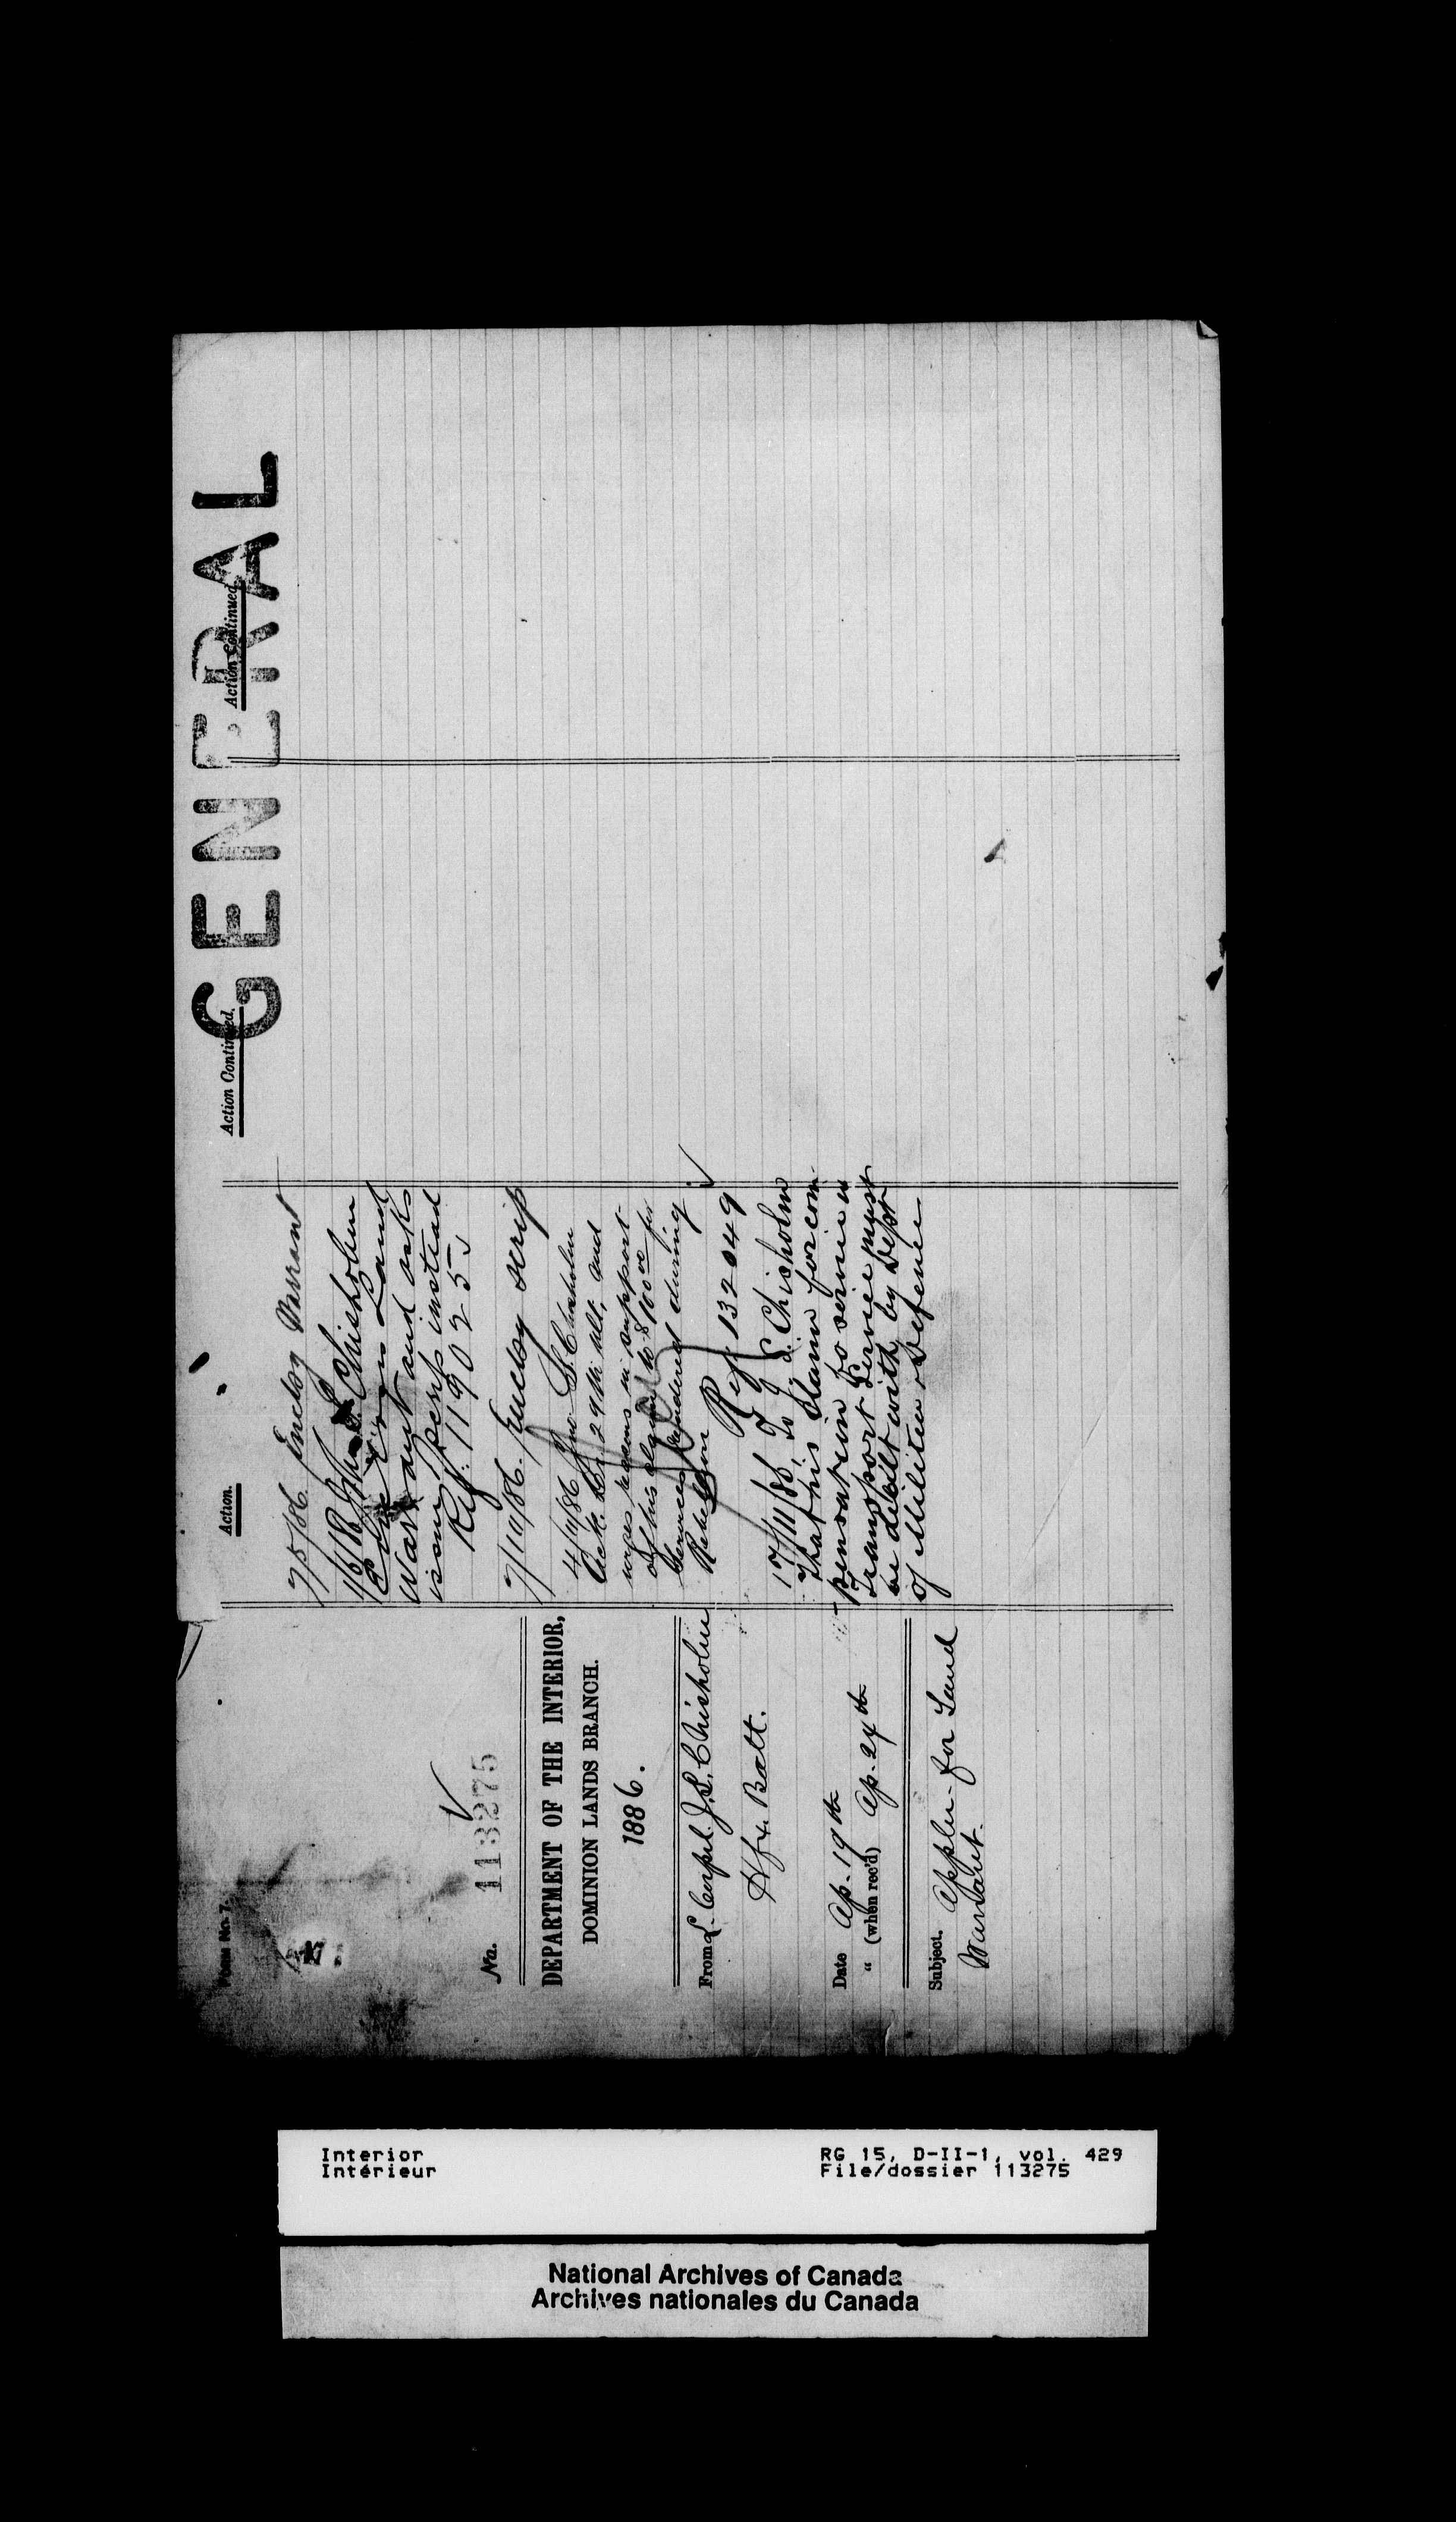 GENERAL
Form No. 7.
No. 113275
DEPARTMENT OF THE INTERIOR,
DOMINION LANDS BRANCH.
1886.
From L. Corpl. J. S. Chisholm
Hfx. Batt.
Date Ap. 19th
" (when rec'd) Ap. 24th
Subject. Appln. for Land
Warrant.
Action.
7/5/86. Encloy Warrant
1/6/86 Chisholm
Land
Warrant and asks
scrip instead
Ref. 119025
7/10/86. Encloy scrip
4/11/86 Jno. S. Chisholm
Ack. 29th ult. and
urges in support
of his claim to $100 00 for
Services rendered during
Rebellion
Ref 132049
17/11/86, To J. S. Chisholm
That his claim for com-
pensation for service in
Transport Service must
be dealt with by Dept
of Militia & Defence
Action Continued.
Action Continued.
Interior
Intérieur
RG 15, D-II-1, vol. 429
File/dossier 113275
National Archives of Canada
Archives nationales du Canada